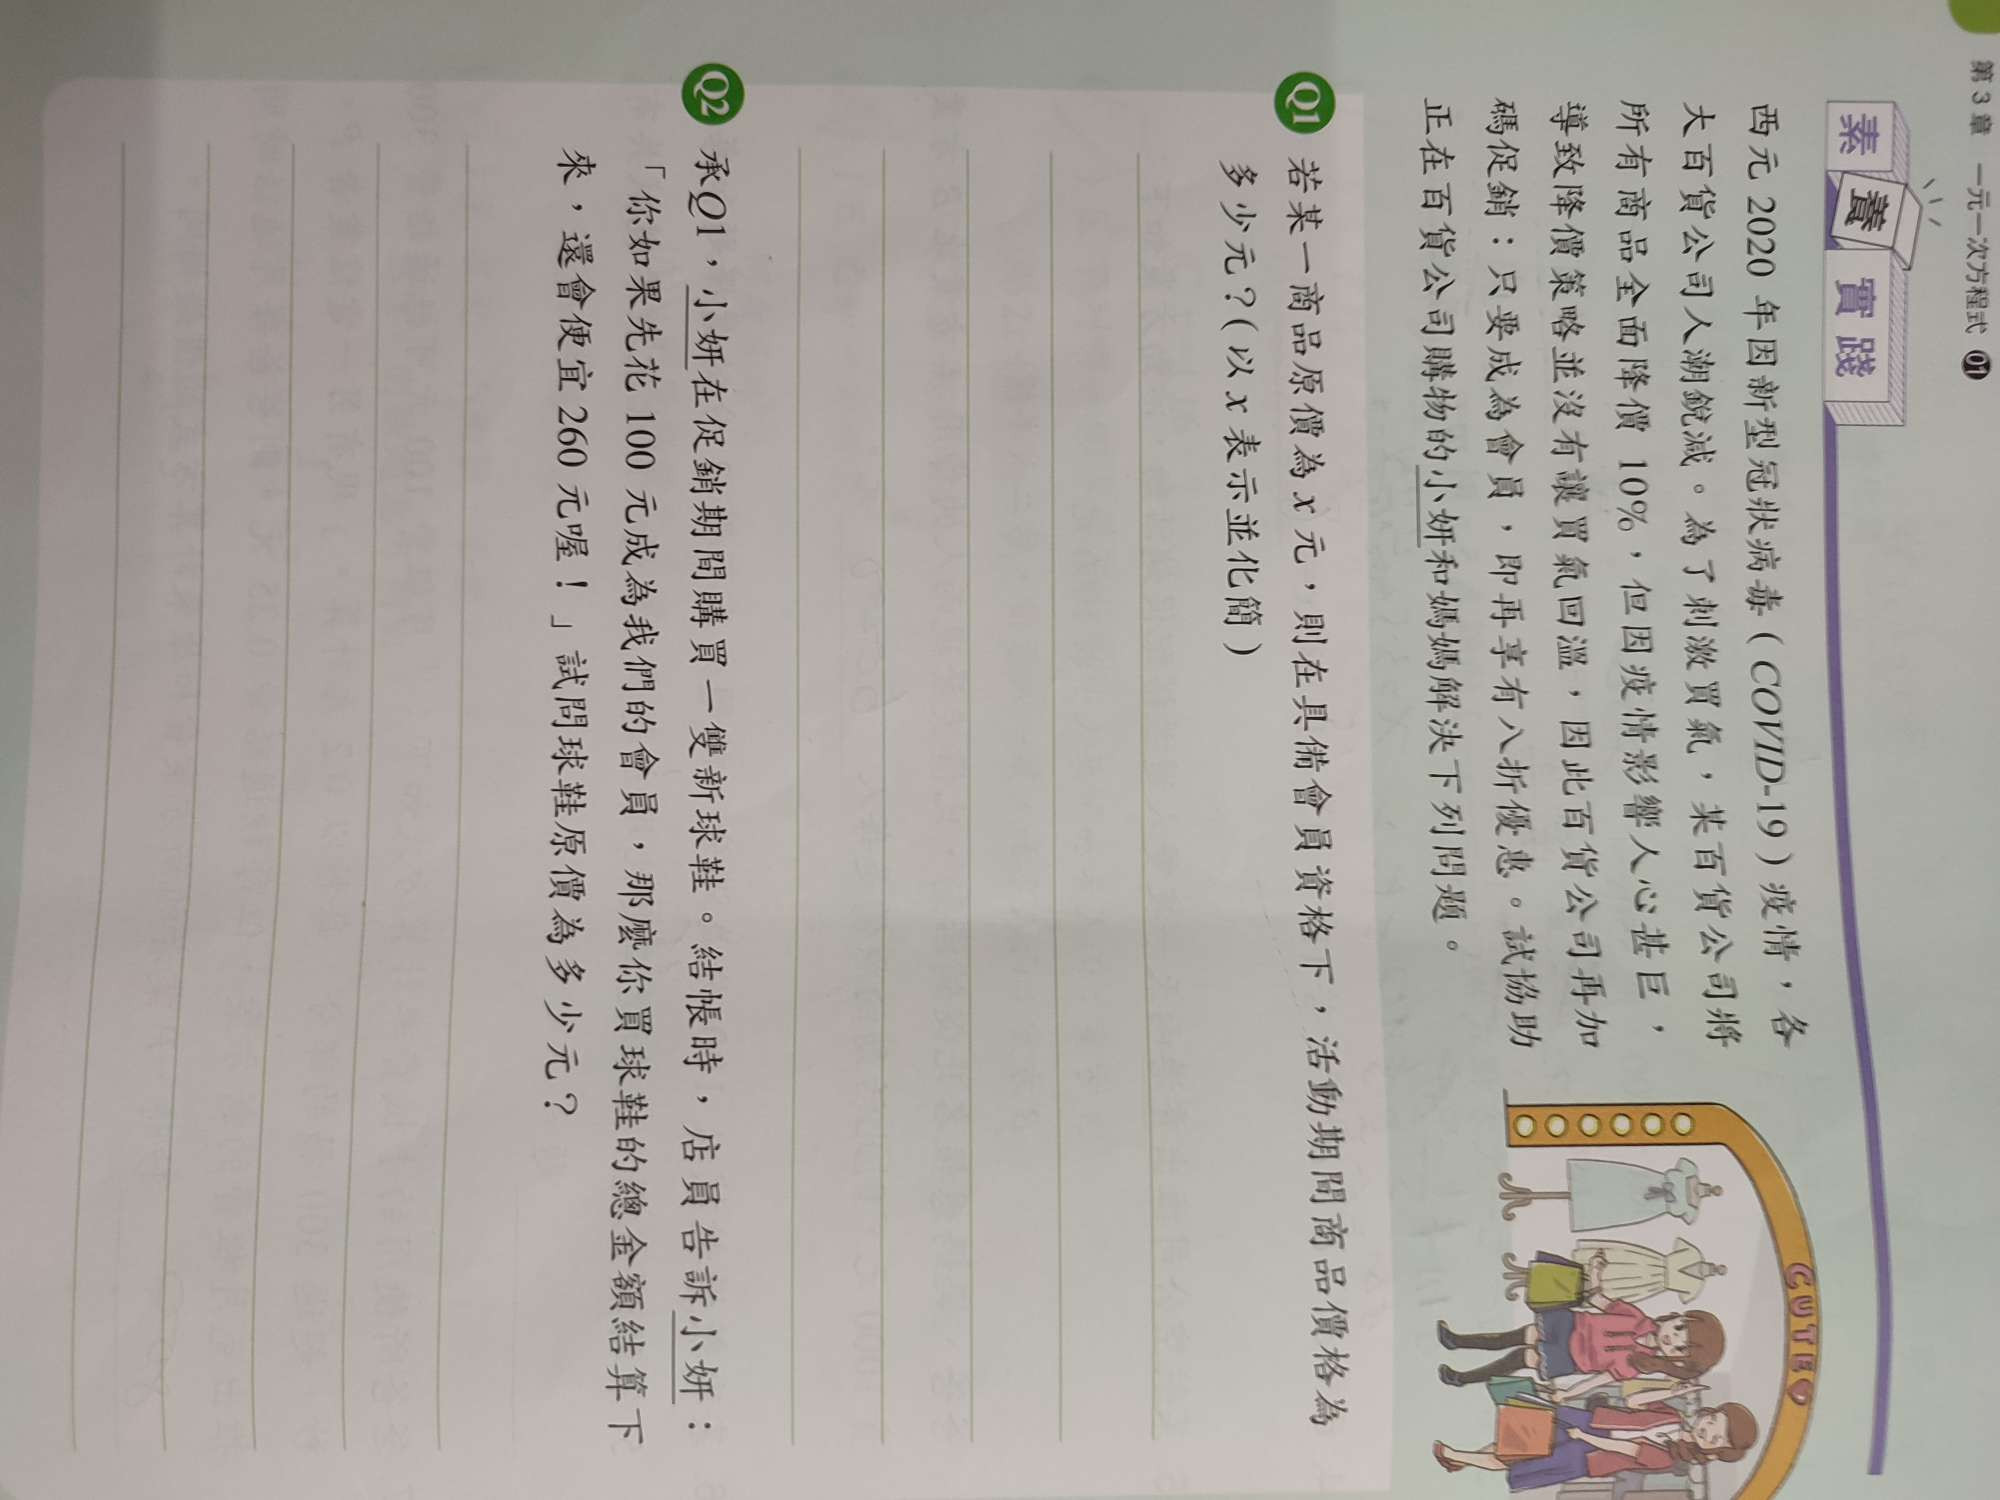 第3章 一元一次方程式 01
素養實踐
西元 2020 年因新型冠狀病毒（COVID-19）疫情，各
大百貨公司人潮銳減。為了刺激買氣，某百貨公司將
所有商品全面降價 10%，但因疫情影響人心甚巨，
導致降價策略並沒有讓買氣回溫，因此百貨公司再加
碼促銷：只要成為會員，即再享有八折優惠。試協助
正在百貨公司購物的小妍和媽媽解決下列問題。
CUTE
Q1 若某一商品原價為 x 元，則在具備會員資格下，活動期間商品價格為
多少元？（以 x 表示並化簡）
Q2 承Q1，小妍在促銷期間購買一雙新球鞋。結帳時，店員告訴小妍：
「你如果先花 100 元成為我們的會員，那麼你買球鞋的總金額結算下
來，還會便宜 260 元喔！」試問球鞋原價為多少元？